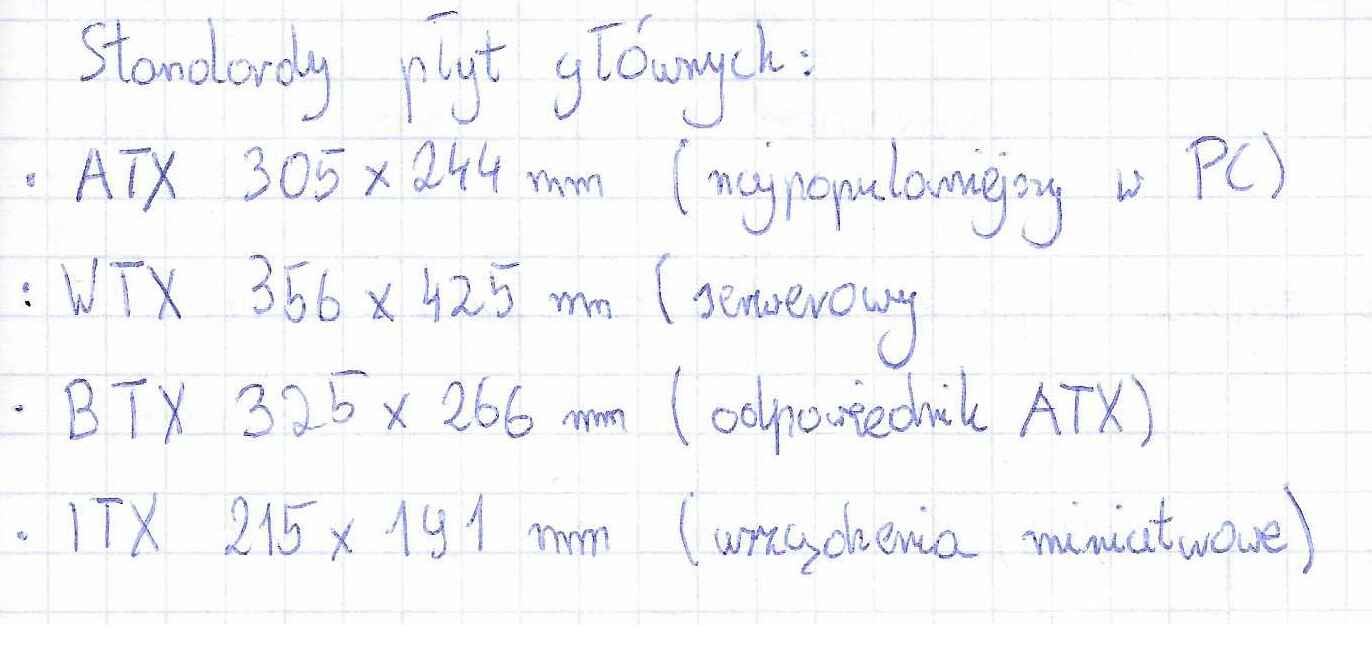 Standardy płyt głównych:
· ATX 305 x 244 mm (najpopularniejszy w PC)
: WTX 356 x 425 mm (serwerowy
· BTX 325 x 266 mm (odpowiednik ATX)
· ITX 215 x 191 mm (urządzenia miniaturowe)